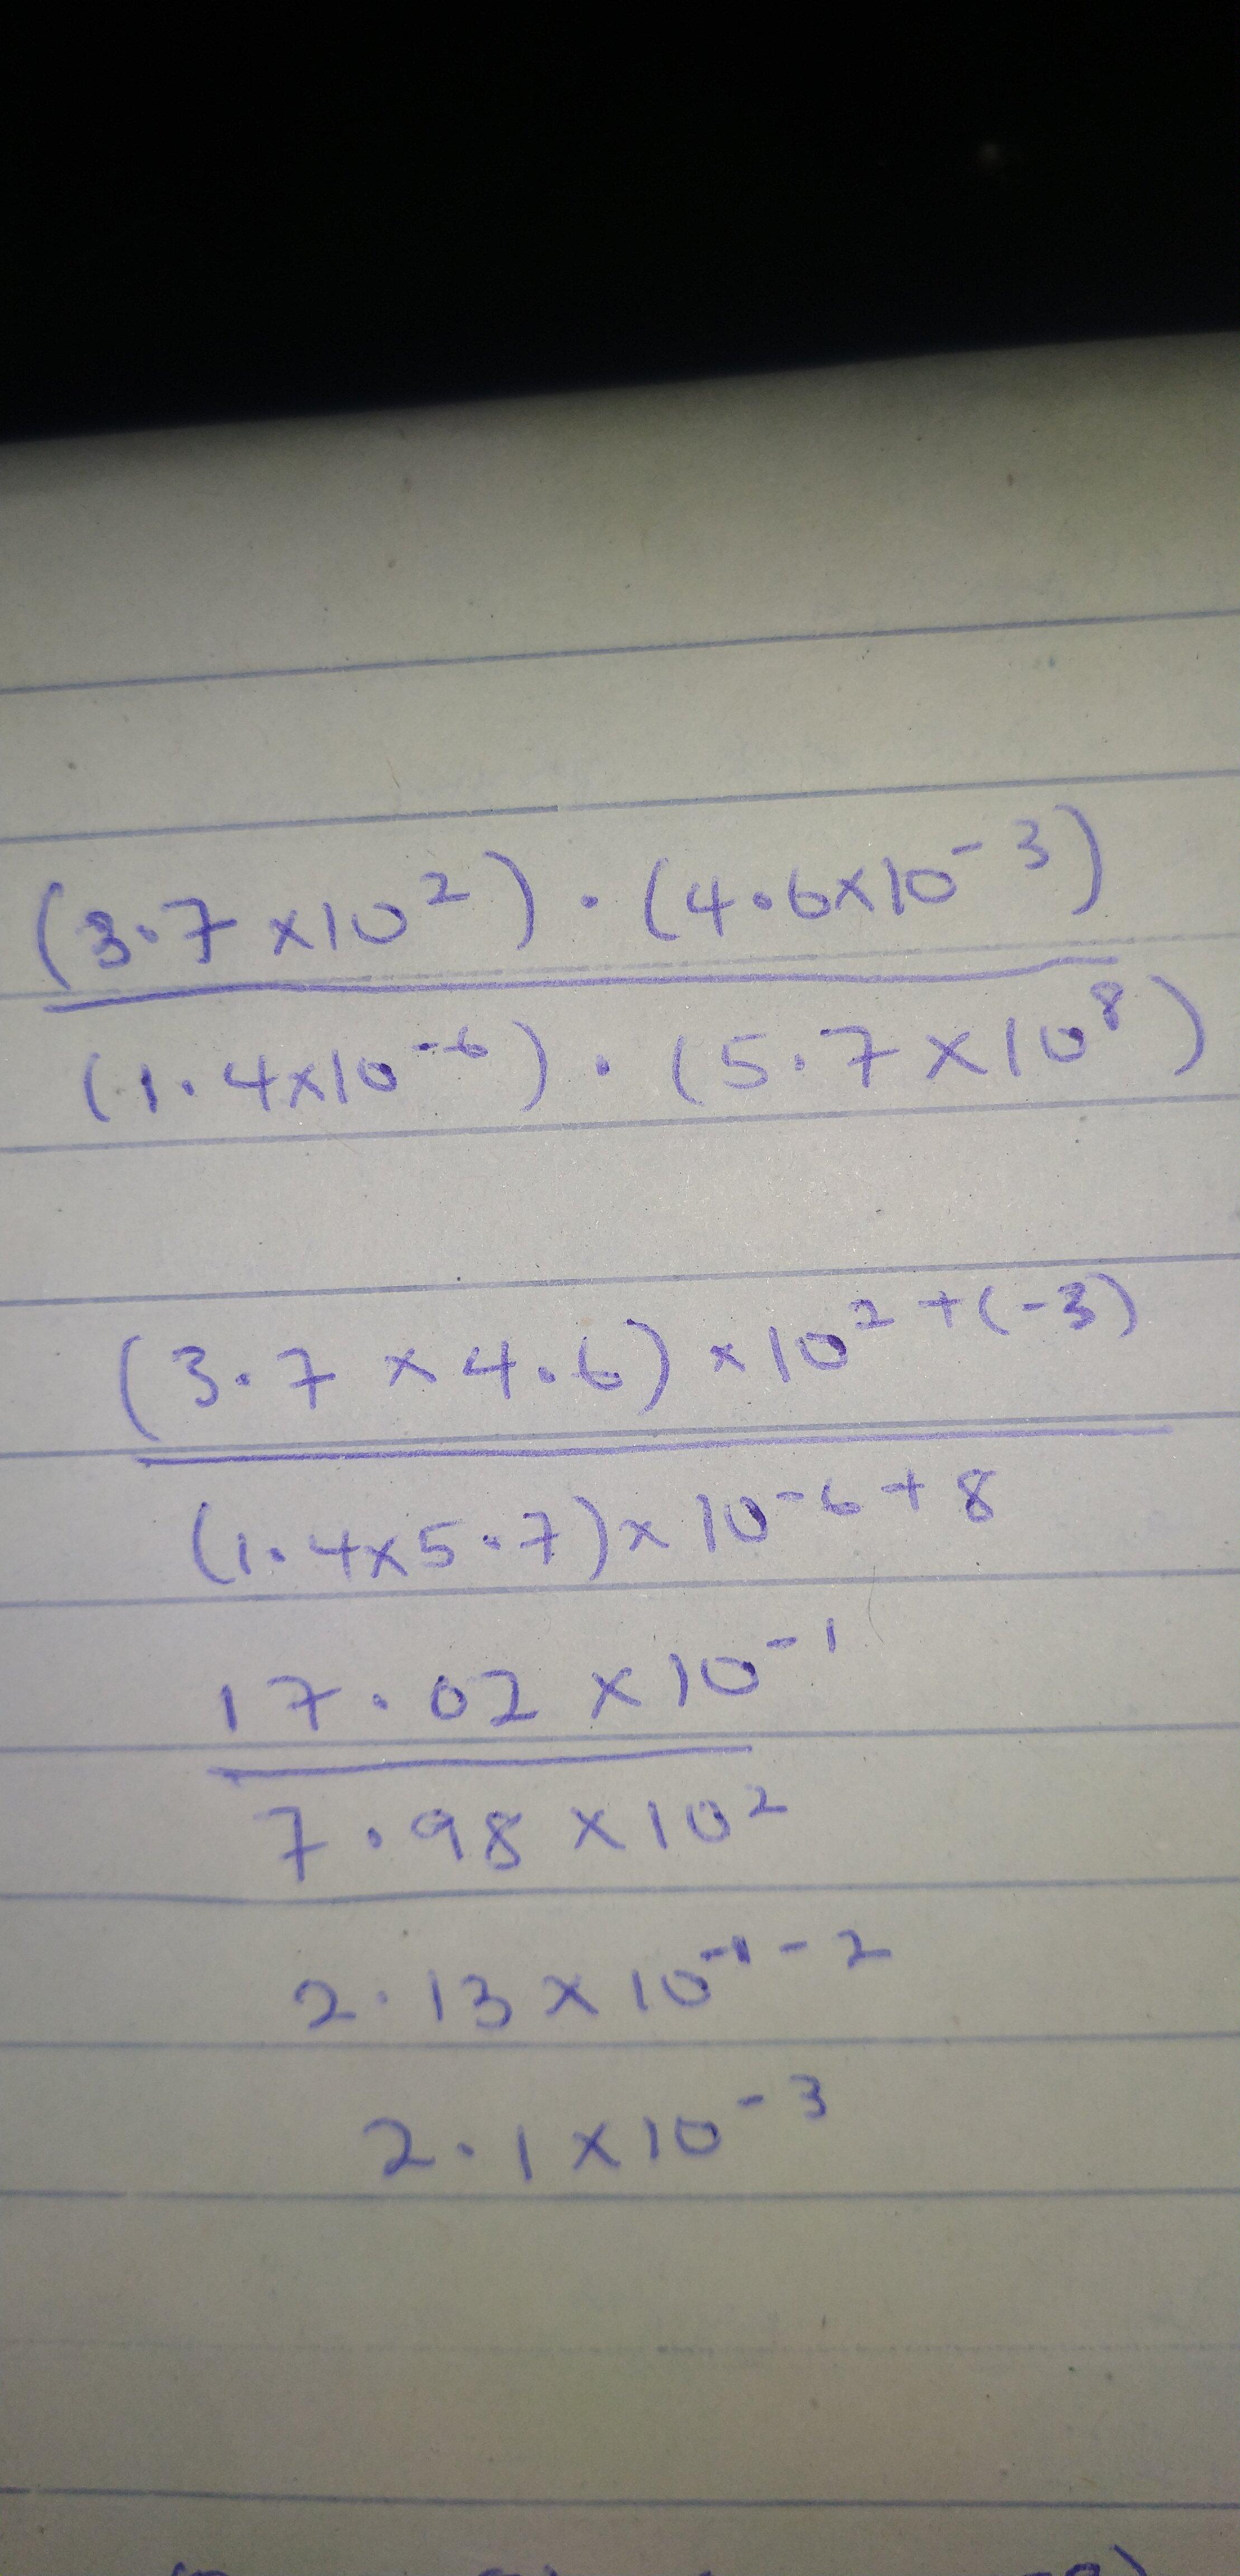 (3.7 x10²) . (4.6x10⁻³)
(1.4x10⁻⁶) . (5.7 x10⁸)
(3.7 x 4.6) x 10²⁺⁽⁻³⁾
(1.4x5.7)x 10⁻⁶⁺⁸
17.02 x10⁻¹
7.98 x10²
2.13 x 10⁻¹⁻²
2.1 x10⁻³